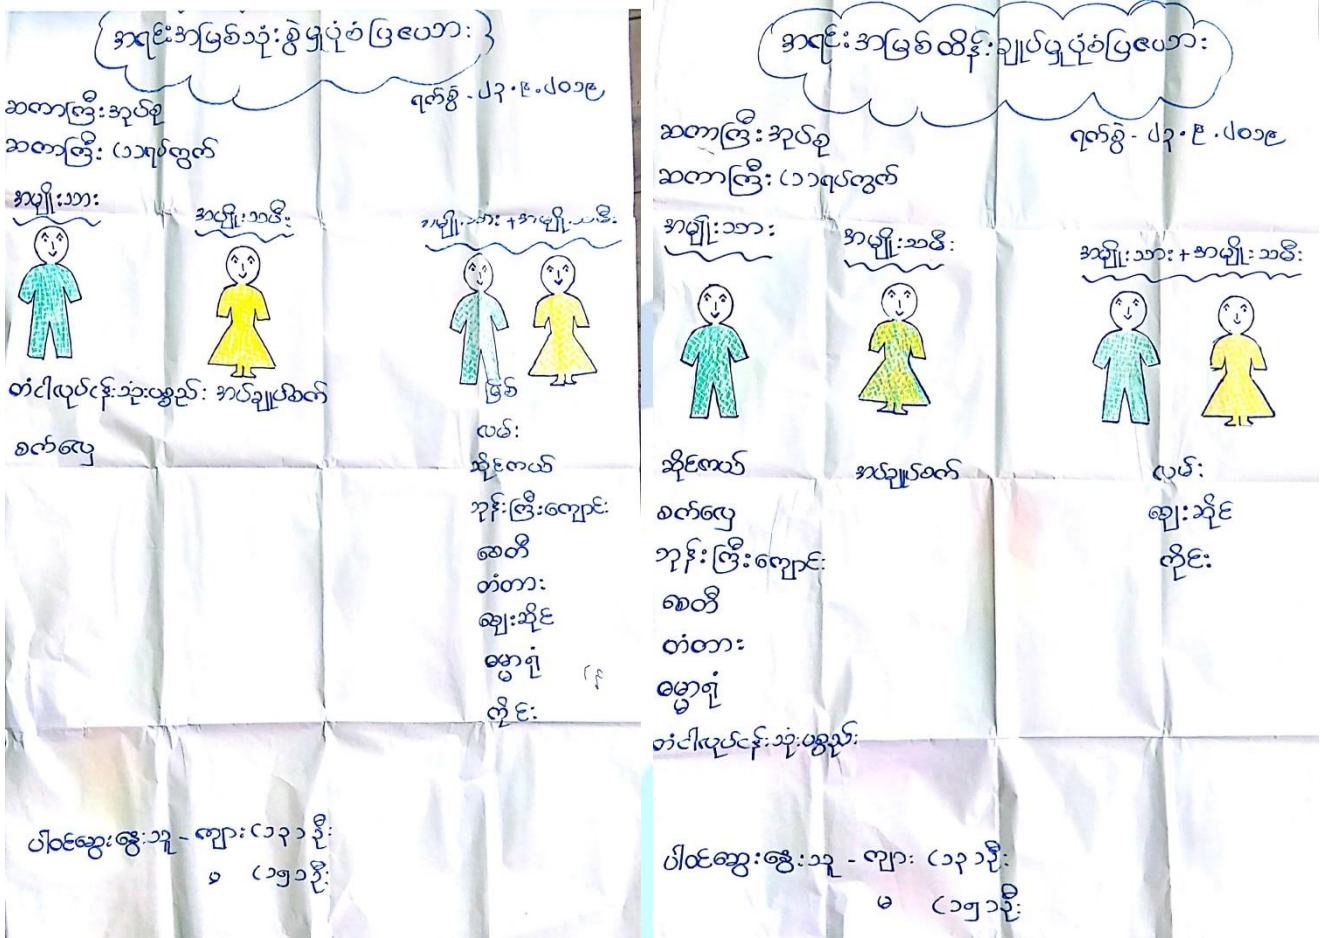 အရင်းအမြစ်သုံးစွဲမှုပုံစံပြဇယား
ရက်စွဲ - ၂၃.၉.၂၀၁၉
ဆကာကြီးအုပ်စု
ဆကာကြီး (၁)ရပ်ကွက်
အမျိုးသား
အမျိုးသမီး
အမျိုးသား + အမျိုးသမီး
တံငါလုပ်ငန်းသုံးပစ္စည်း အပ်ချုပ်စက်
စက်လှေ
မြစ်
လမ်း
ဆိုင်ကယ်
ဘုန်းကြီးကျောင်း
စေတီ
တံတား
ဈေးဆိုင်
ဓမ္မာရုံ
ကိုင်း
ပါဝင်ဆွေးနွေးသူ - ကျား (၁၃)ဦး
မ (၁၅)ဦး
အရင်းအမြစ်ထိန်းချုပ်မှုပုံစံပြဇယား
ရက်စွဲ - ၂၃.၉.၂၀၁၉
ဆကာကြီးအုပ်စု
ဆကာကြီး (၁)ရပ်ကွက်
အမျိုးသား
အမျိုးသမီး
အမျိုးသား + အမျိုးသမီး
ဆိုင်ကယ်
စက်လှေ
ဘုန်းကြီးကျောင်း
စေတီ
တံတား
ဓမ္မာရုံ
တံငါလုပ်ငန်းသုံးပစ္စည်း
အပ်ချုပ်စက်
လမ်း
ဈေးဆိုင်
ကိုင်း
ပါဝင်ဆွေးနွေးသူ - ကျား (၁၃)ဦး
မ (၁၅)ဦး